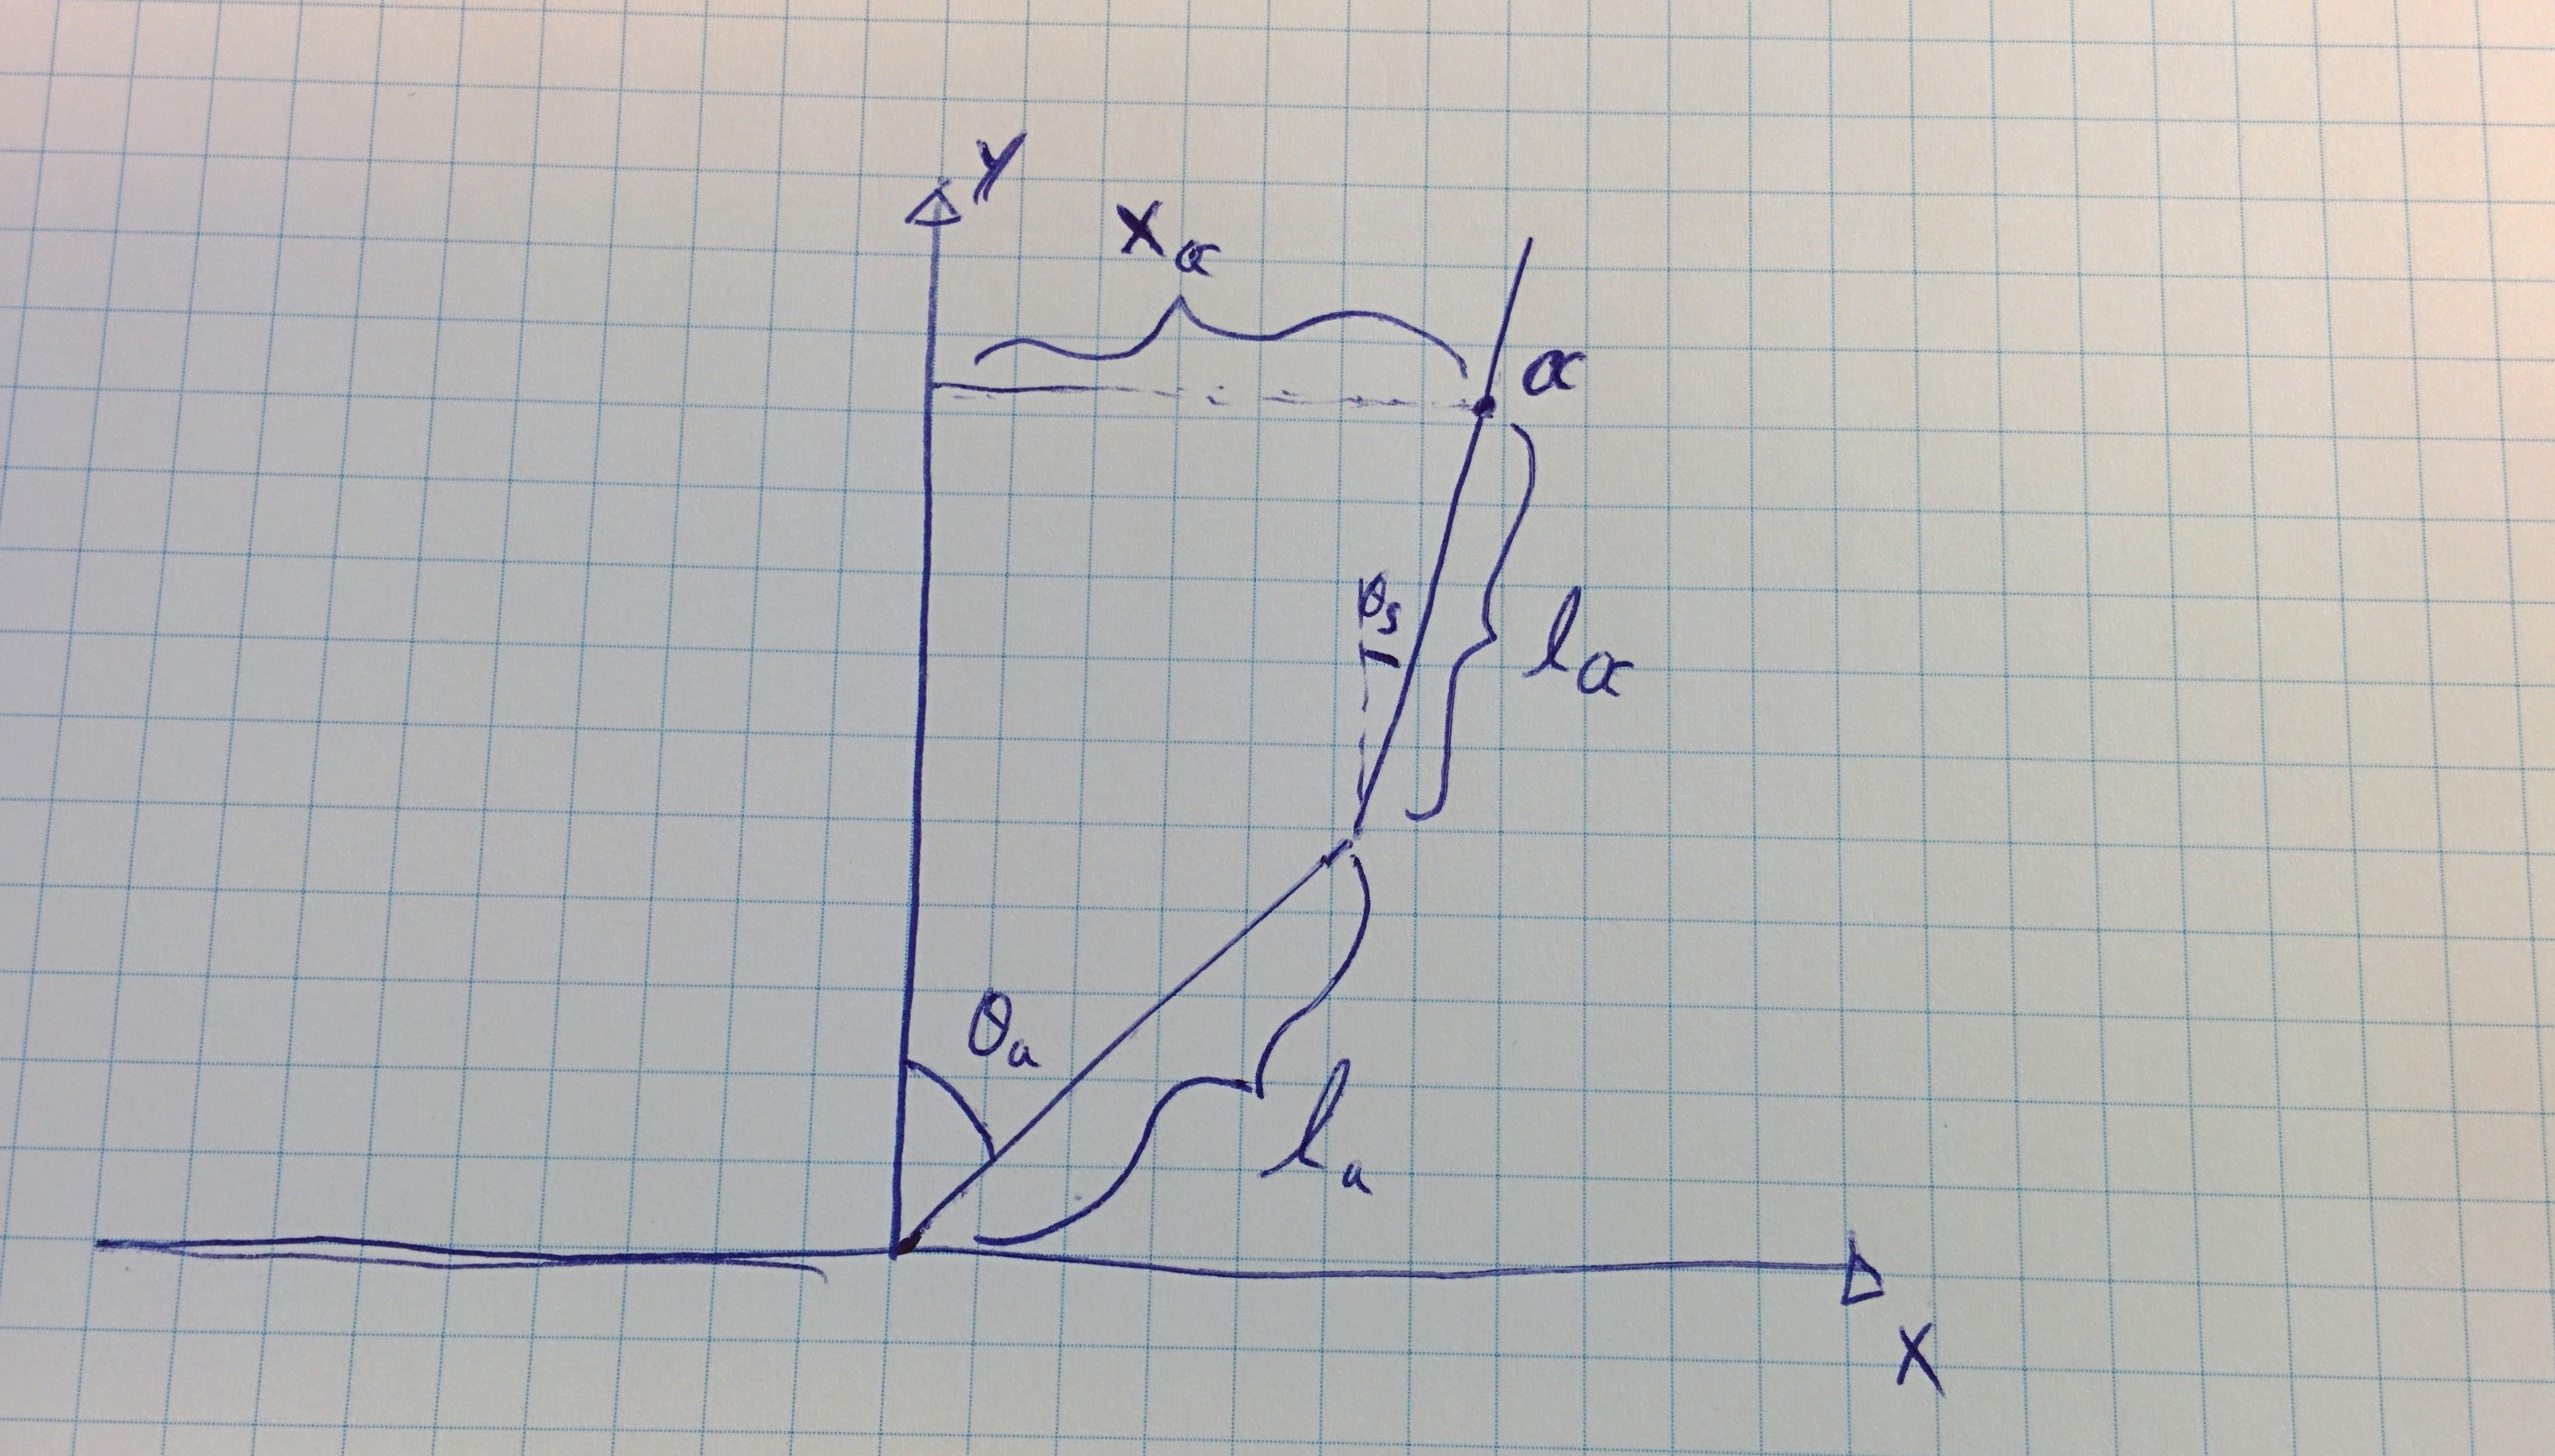 Y
xα
α
θs
lα
θa
la
X